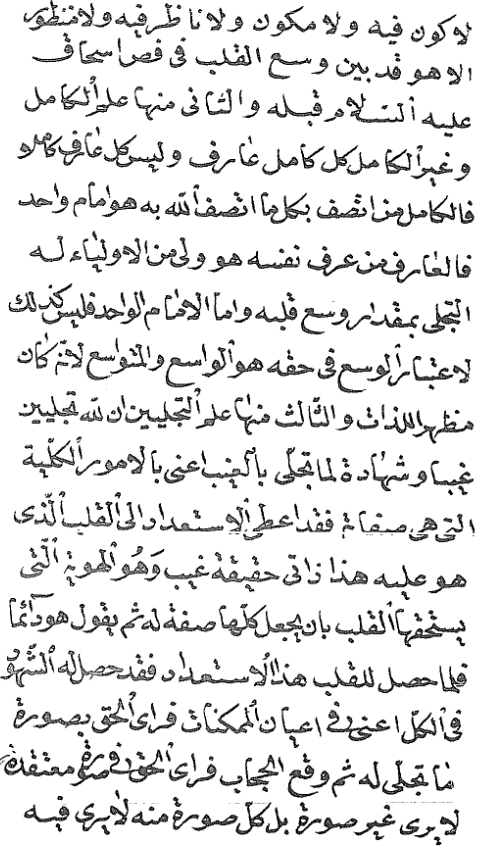 لا كون فيه ولا مكون ولا ناظر فيه ولا منظور
الا هو قد بين وسع القلب فى فص اسحاق
عليه السلام قبله والثانى منها علم الكامل
وغير الكامل كل كامل عارف وليس كل عارف كاملا
فالكامل من اتصف بكل ما اتصف الله به هو امام واحد
فالعارف من عرف نفسه هو ولى من الاولياء له
التجلى بمقدار وسع قلبه واما الامام الواحد فليس كذلك
لاعتبار الوسع فى حقه هو الواسع والمتواسع لانه كان
مظهرا للذات والثالث منها علم التجليين ان لله تجليين
غيبا وشهادة لما تجلى بالغيب اعنى بالامور الكلية
التى هى صفاته فقد اعطى الاستعداد الى القلب الذى
هو عليه هذا ذاتى حقيقة غيب وهو الهوية التى
يستحقها القلب بان يجعل كلها صفة له ثم يقول هو دآئما
فلما حصل للقلب هذا الاستعداد فقد حصل له الشهود
فى الكل اعنى فى اعيان الممكنات فراى الحق بصورة
ما تجلى له ثم وقع الحجاب فراى الحق فى صورة معتقدة
لا يرى غير صورة بل كل صورة منه لا يرى فيه